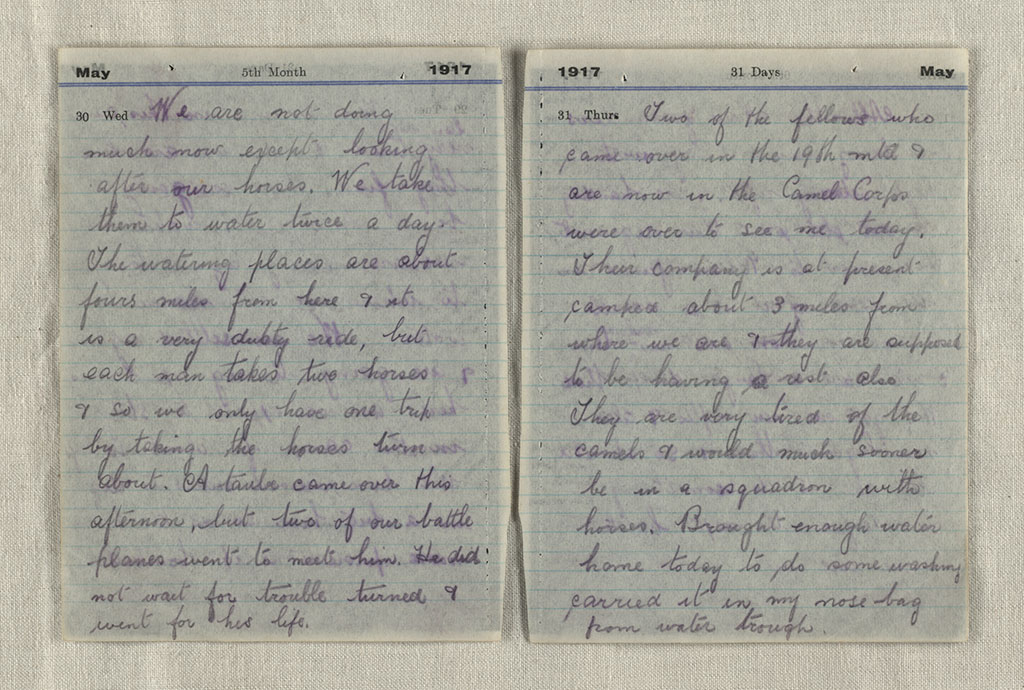 May 5th Month 1917
30 Wed We are not doing
much now except looking
after our horses. We take
them to water twice a day.
The watering places are about
fours miles from here & it
is a very dusty ride, but
each man takes two horses &
& so we only have one trip
by taking the horses turn
about. A taube came over this
afternoon, but two of our battle
planes went to meet him. He did
not wait for trouble turned &
went for his life.
1917 31 Days May
31 Thurs Two of the fellows who
came over in the 19th mtd &
are now in the Camel Corps
were over to see me today.
Their company is at present
camped about 3 miles from
where we are & they are supposed
to be having a rest also
They are very tired of the
camels & would much sooner
be in a squadron with
horses. Brought enough water
home today to do some washing
carried it in my nose bag
from water trough.